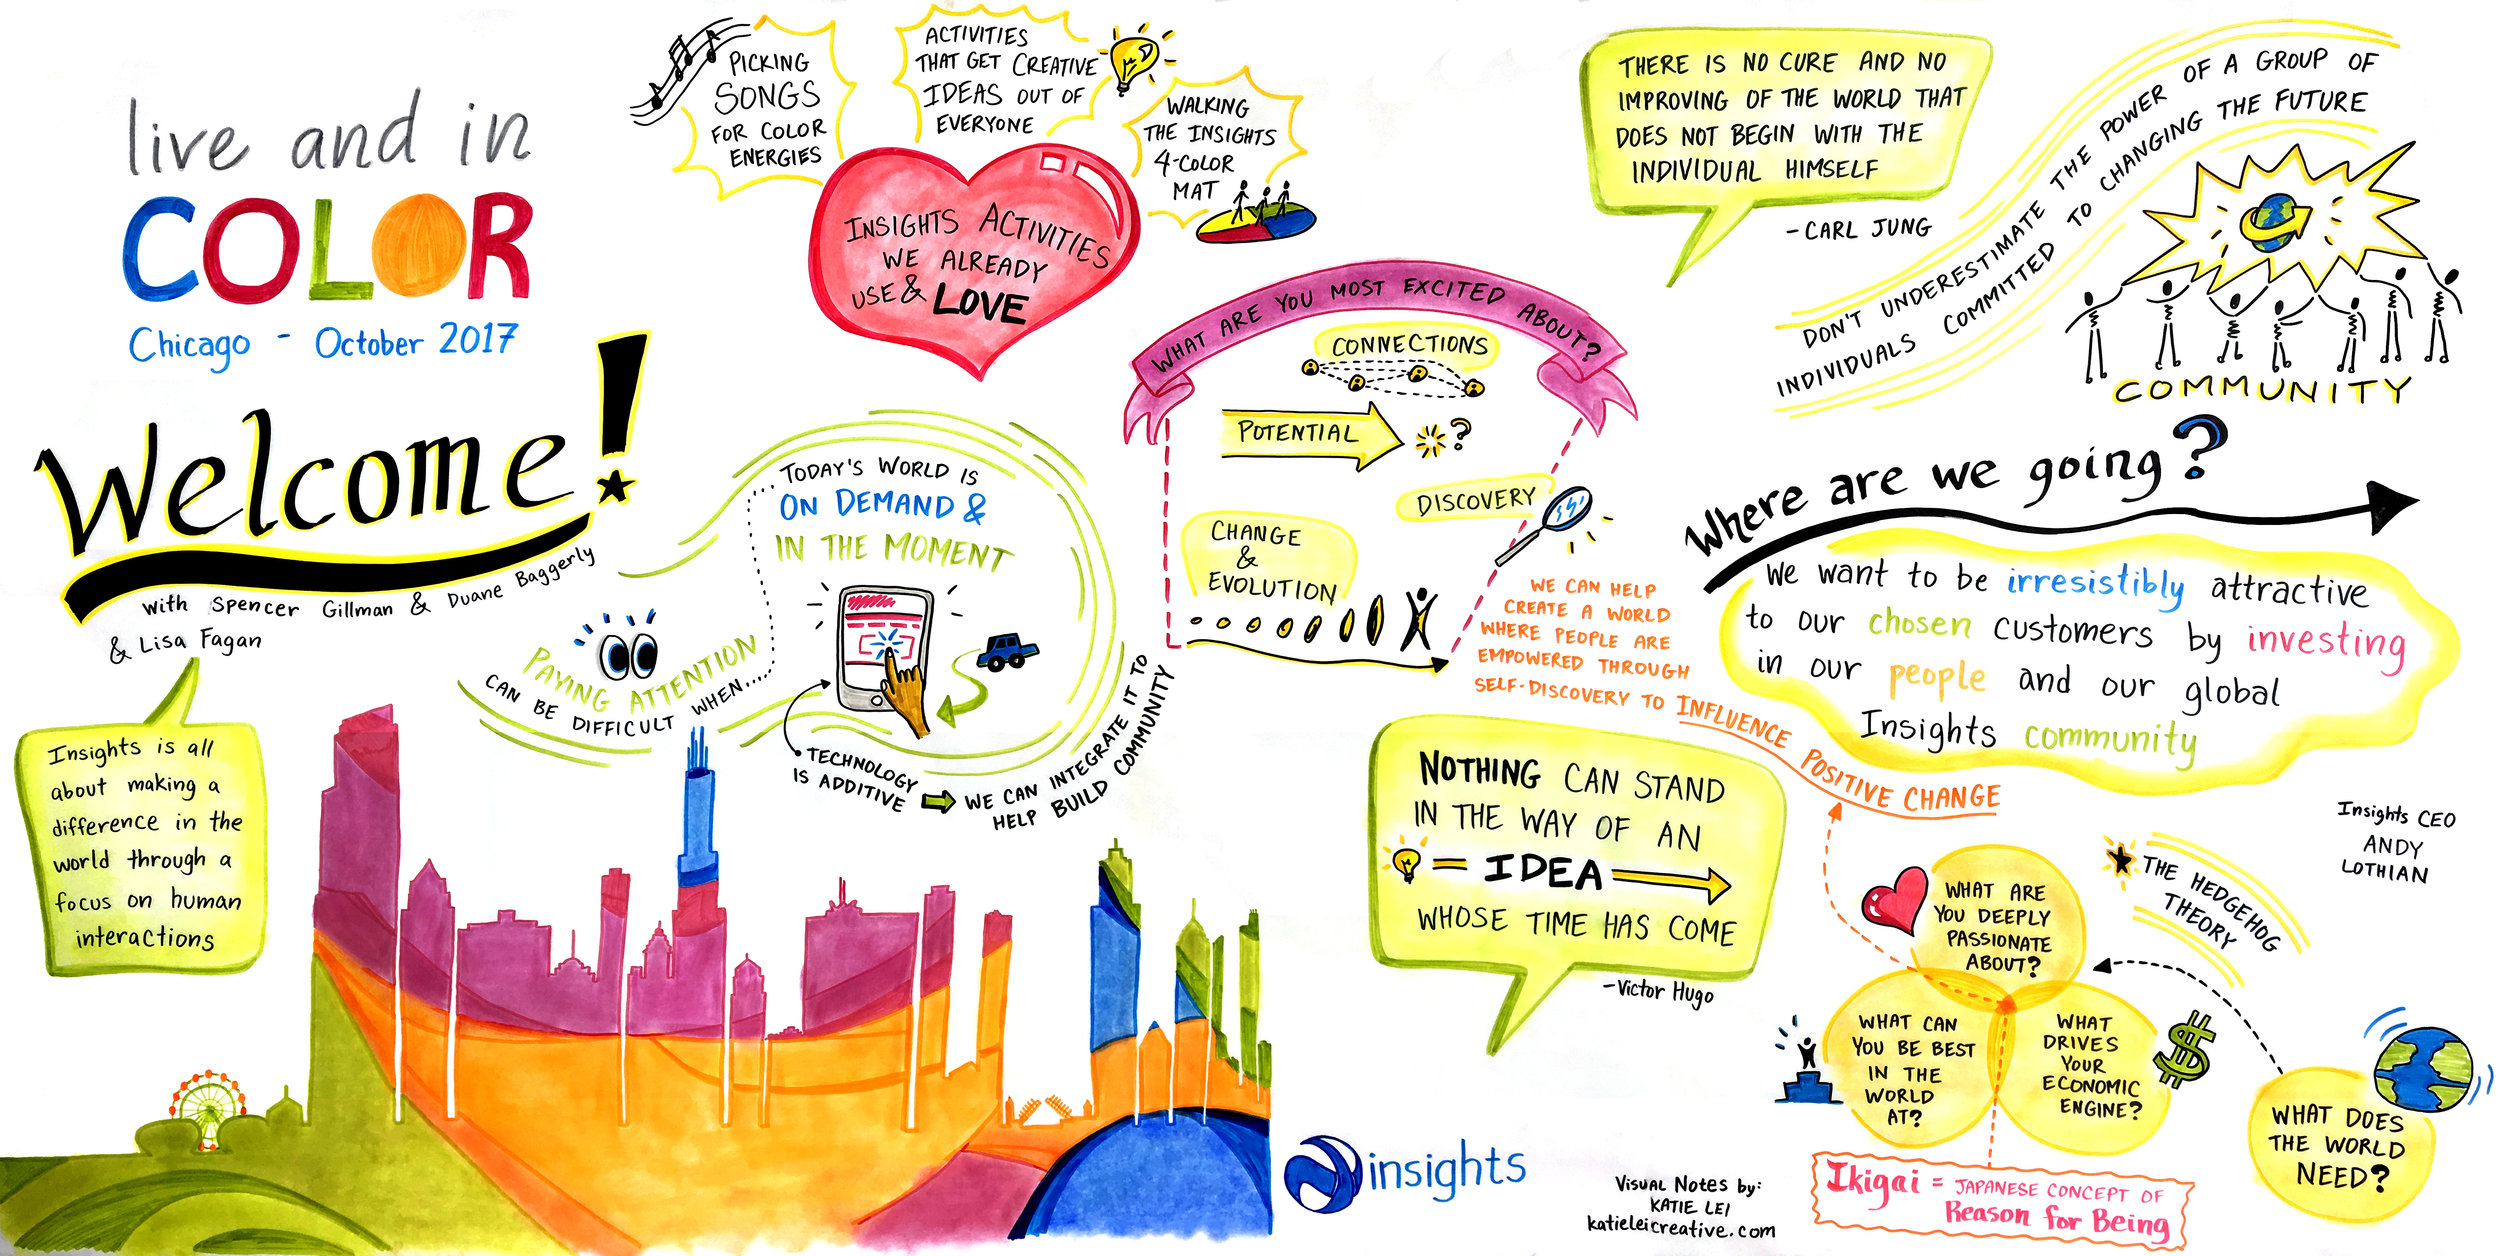 live and in
COLOR
Chicago - October 2017
Welcome!
with Spencer Gillman & Duane Baggerly
& Lisa Fagan
Insights is all
about making a
difference in the
world through a
focus on human
interactions
PICKING
SONGS
FOR COLOR
ENERGIES
ACTIVITIES
THAT GET CREATIVE
IDEAS OUT OF
EVERYONE
WALKING
THE INSIGHTS
4-COLOR
MAT
INSIGHTS ACTIVITIES
WE ALREADY
USE & LOVE
PAYING ATTENTION
CAN BE DIFFICULT WHEN....
TODAY'S WORLD IS
ON DEMAND &
IN THE MOMENT
TECHNOLOGY
IS ADDITIVE
WE CAN INTEGRATE IT TO
HELP BUILD COMMUNITY
WHAT ARE YOU MOST EXCITED ABOUT?
CONNECTIONS
POTENTIAL
?
DISCOVERY
CHANGE
&
EVOLUTION
WE CAN HELP
CREATE A WORLD
WHERE PEOPLE ARE
EMPOWERED THROUGH
SELF-DISCOVERY TO INFLUENCE POSITIVE CHANGE
THERE IS NO CURE AND NO
IMPROVING OF THE WORLD THAT
DOES NOT BEGIN WITH THE
INDIVIDUAL HIMSELF
-CARL JUNG
DON'T UNDERESTIMATE THE POWER OF A GROUP OF
INDIVIDUALS COMMITTED TO CHANGING THE FUTURE
COMMUNITY
Where are we going?
We want to be irresistibly attractive
to our chosen customers by investing
in our people and our global
Insights community
Insights CEO
ANDY
LOTHIAN
NOTHING CAN STAND
IN THE WAY OF AN
= IDEA
WHOSE TIME HAS COME
-VICTOR HUGO
THE HEDGEHOG
THEORY
WHAT ARE
YOU DEEPLY
PASSIONATE
ABOUT?
WHAT CAN
YOU BE BEST
IN THE
WORLD
AT?
WHAT
DRIVES
YOUR
ECONOMIC
ENGINE?
$
WHAT DOES
THE WORLD
NEED?
Ikigai = JAPANESE CONCEPT OF
Reason for Being
insights
VISUAL NOTES by:
KATIE LEI
katieleicreative.com